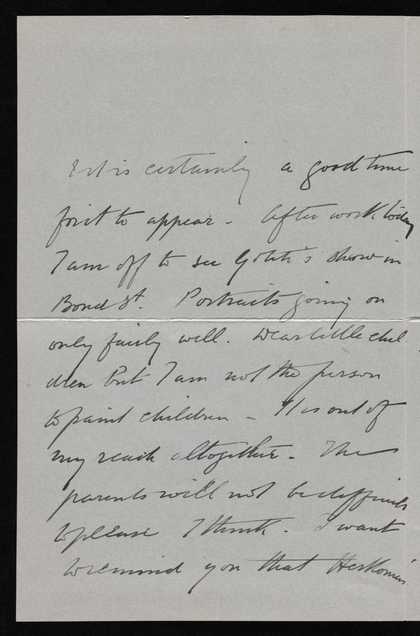 it is certainly a good time
for it to appear - After work today
I am off to see Gotch's show in
Bond St. Portraits going on
only fairly well. Dear little chil
dren but I am not the person
to paint children - It is out of
my reach altogether - The
parents will not be difficult
to please I think. I want
to remind you that Herkomer's